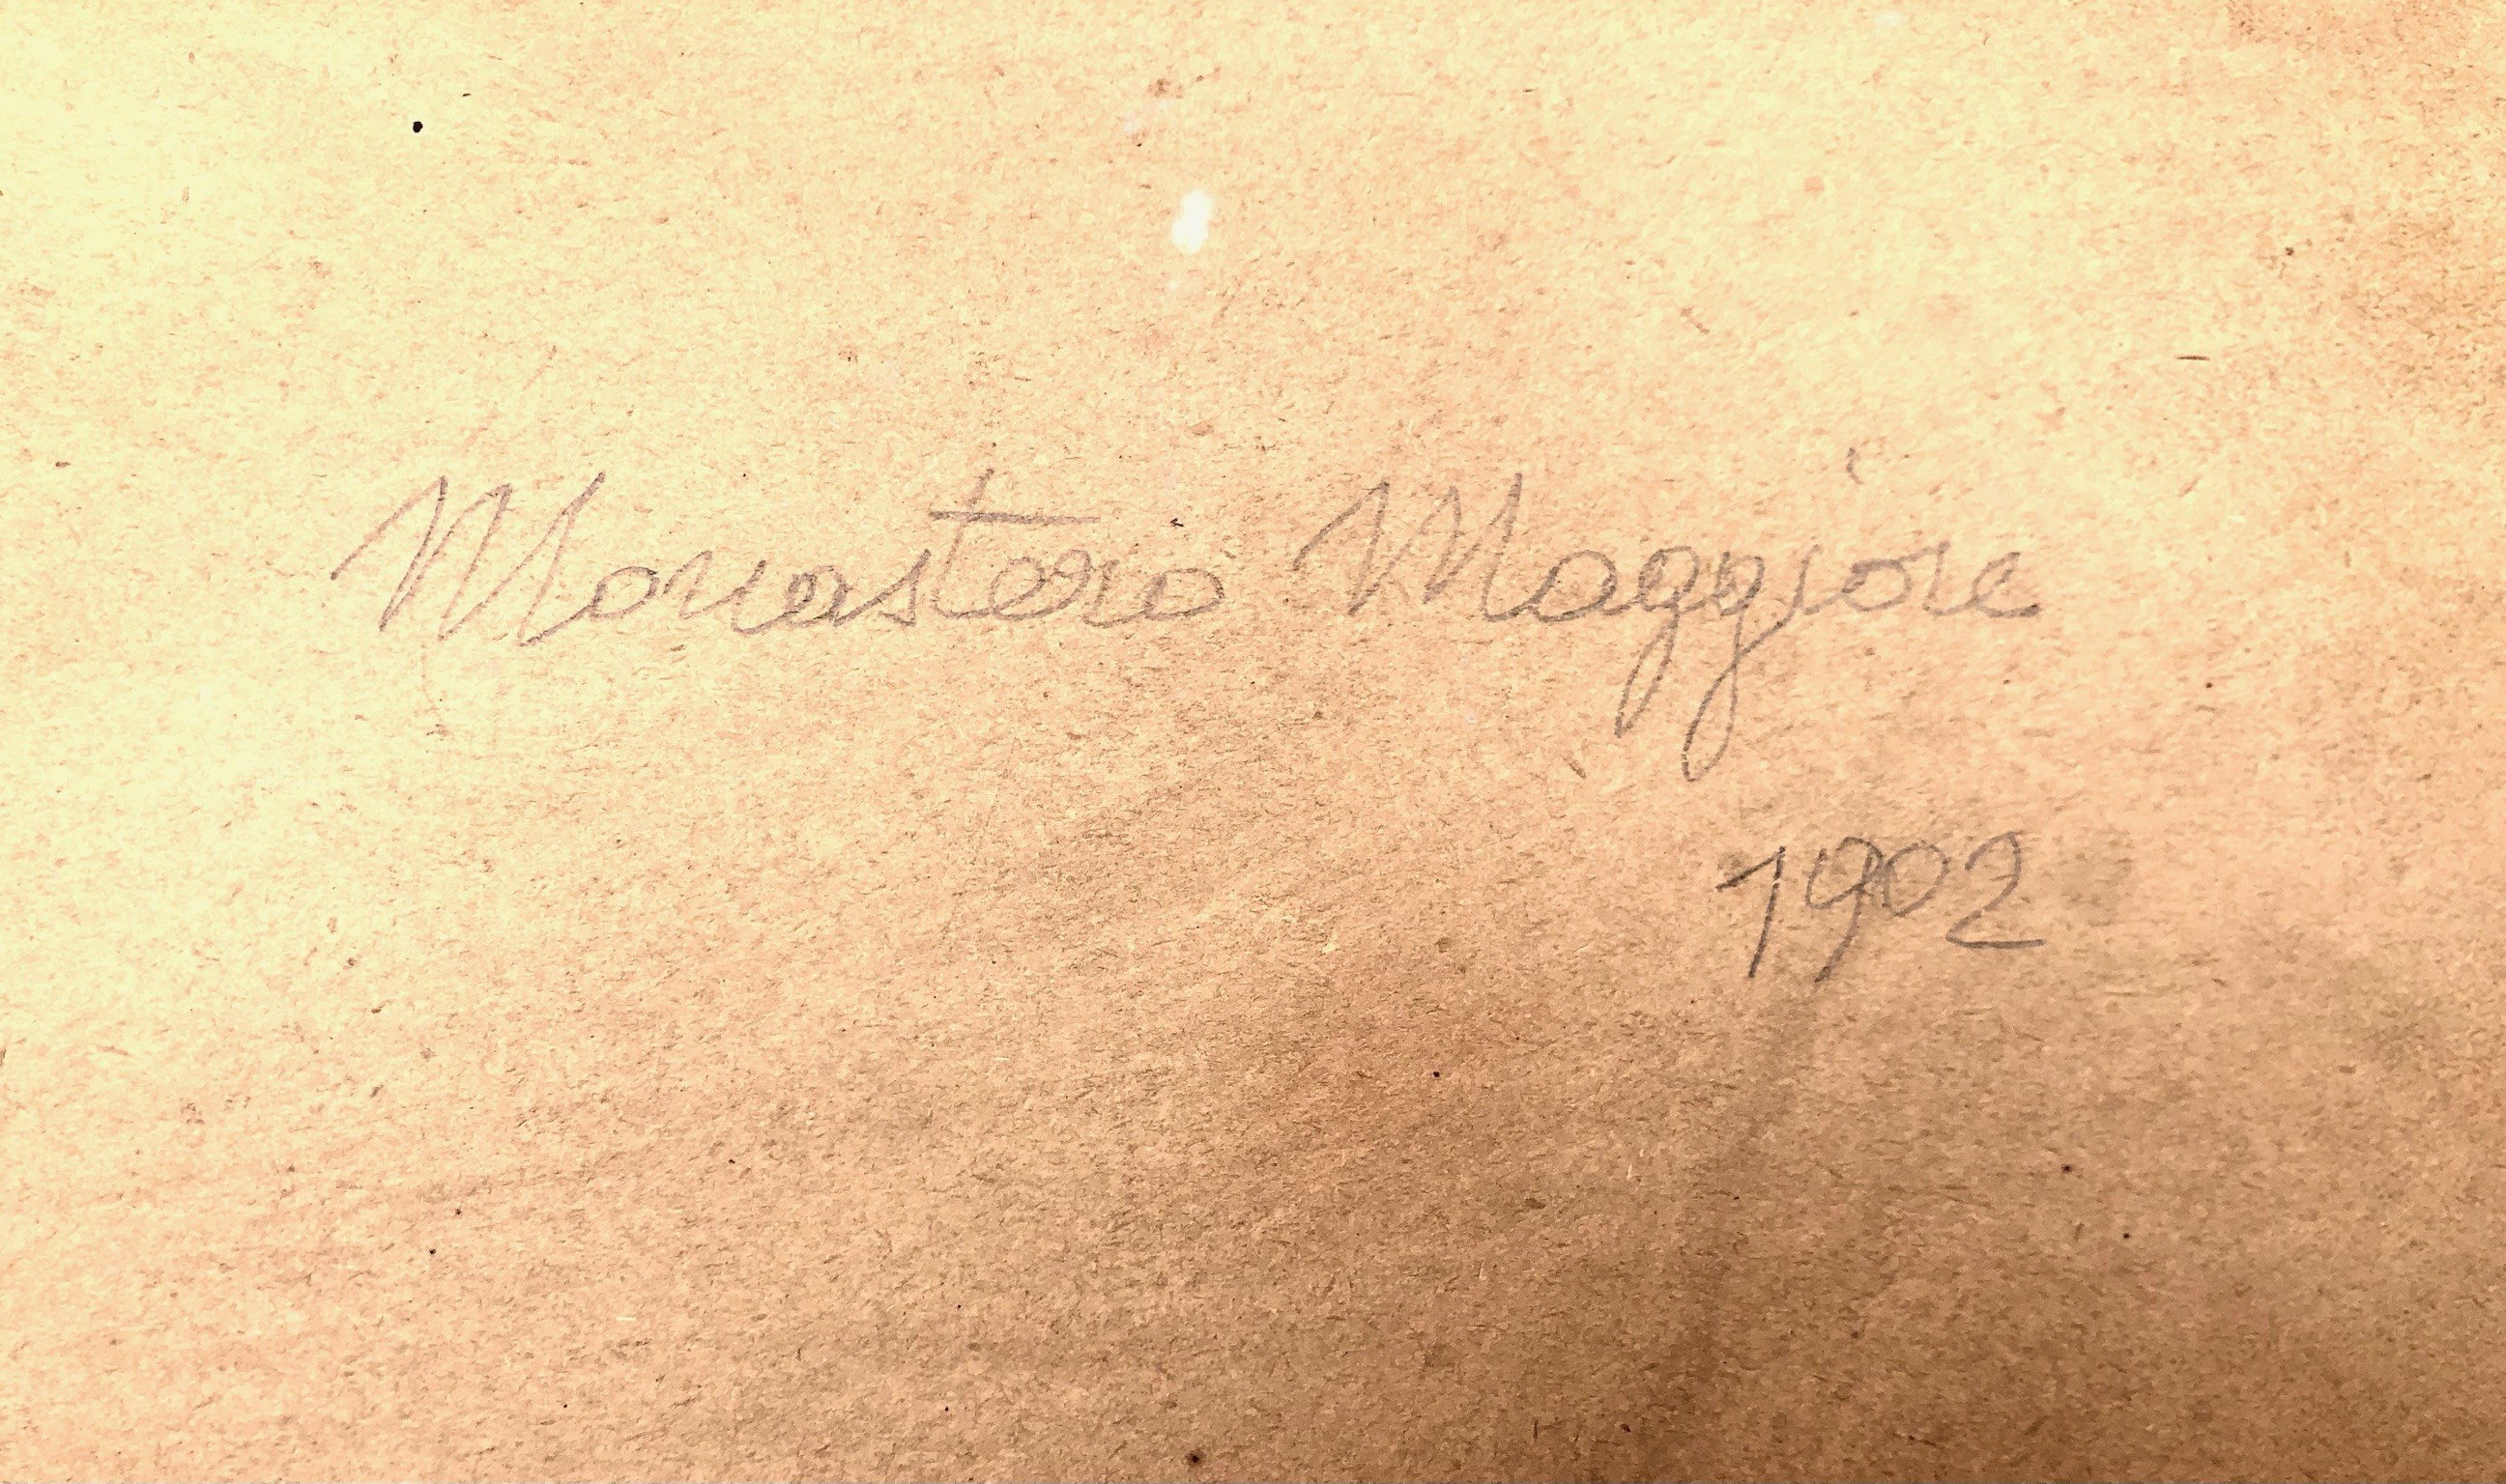 Monastero Maggiore
1902